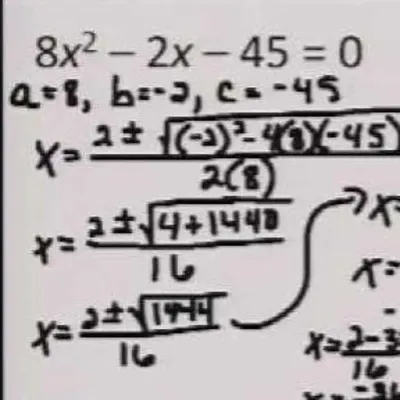 8x² − 2x − 45 = 0
a=8, b=-2, c=-45
x= 2 ± √(-2)²-4(8)(-45)
2(8)
x= 2±√4+1440
16
x= 2±√1444
16
x
x=
x= 2-3
16